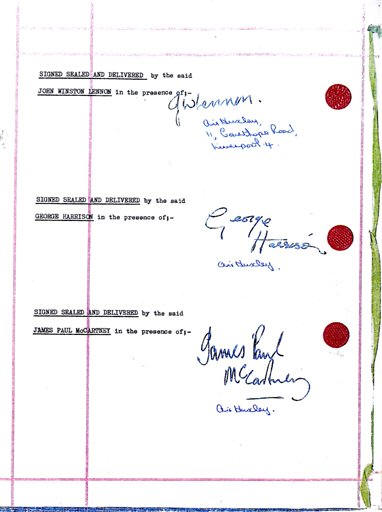 SIGNED SEALED AND DELIVERED by the said
JOHN WINSTON LENNON in the presence of:-
JWLennon.
11,
Road,
Liverpool 4.
SIGNED SEALED AND DELIVERED by the said
GEORGE HARRISON in the presence of:-
George
Harrison
SIGNED SEALED AND DELIVERED by the said
JAMES PAUL McCARTNEY in the presence of:-
James Paul
McCartney